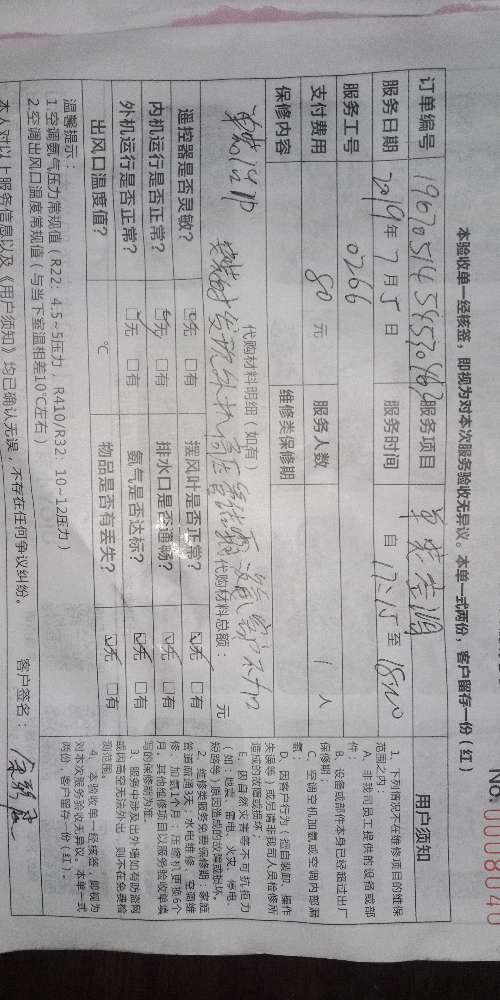 No. 0008040
本验收单一经核签，即视为对本次服务验收无异议。本单一式两份，客户留存一份（红）
订单编号 服务项目 单装空调
服务日期 2019年7月5日 服务时间 自17:15至
服务工号 0266
支付费用 80元 服务人数 1人
保修内容 维修类保修期
代购材料明细（如有）
代购材料总额： 元
遥控器是否灵敏？ □无 □有 摆风叶是否正常？ □无 □有
内机运行是否正常？ □无 □有 排水口是否通畅？ □无 □有
外机运行是否正常？ □无 □有 氨气是否达标？ □无 □有
出风口温度值？ ℃ 物品是否有丢失？ □无 □有
温馨提示：
1.空调氨气压力常规值（R22：4.5~5压力，R410/R32：10~12压力）
2.空调出风口温度常规值（与当下室温相差10℃左右）
本人对以上服务信息以及《用户须知》均已确认无误，不存在任何争议纠纷。 客户签名：
用户须知
1、下列情况不在维修项目的维保
范围之内：
A、非我司员工提供的设备或部
B、设备或部件本身已经超过出厂
保修期；
C、空调空机加氨或空调内部漏
氨；
D、因客户行为（擅自装卸、操作
失误等）或另请非我司人员检修所
造成的故障或损坏；
E、因自然灾害等不可抗拒力
（如：地震、雷电、火灾、停电、
短路等）原因造成的故障或损坏。
2、维修类服务免费保修期：家庭
管道疏通7天，水电维修、空调维
修、加氨1个月；压缩机更换6个
月，其他维修项目以服务验收单填
写的保修期为准。
3、服务中涉及出外墙如有防盗网
或因悬空无法外出，则不在免费检
测范围。
4、本验收单一经核签，即视为
对本次服务验收无异议，本单一式
两份，客户留存一份（红）。